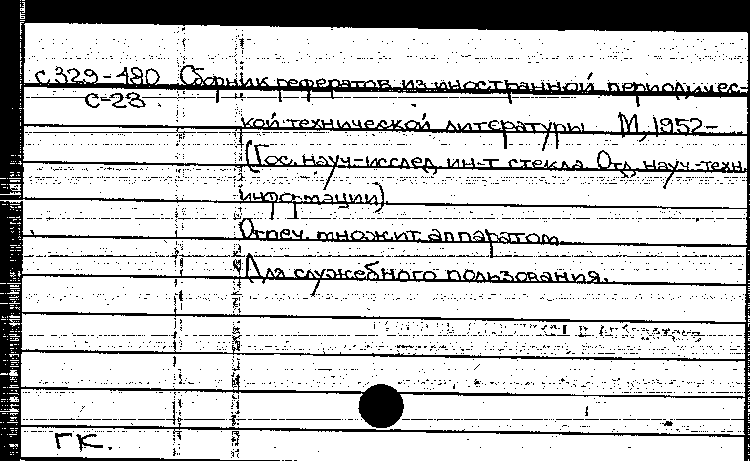 с329-480 Сборник рефератов из иностранной периодичес-
С-23.
кой технической литературы М, 1952-
(Гос. науч-исслед. ин-т стекла. Отд. науч-техн.
информации).
Отпеч. множит. аппаратом.
Для служебного пользования.
ГК.